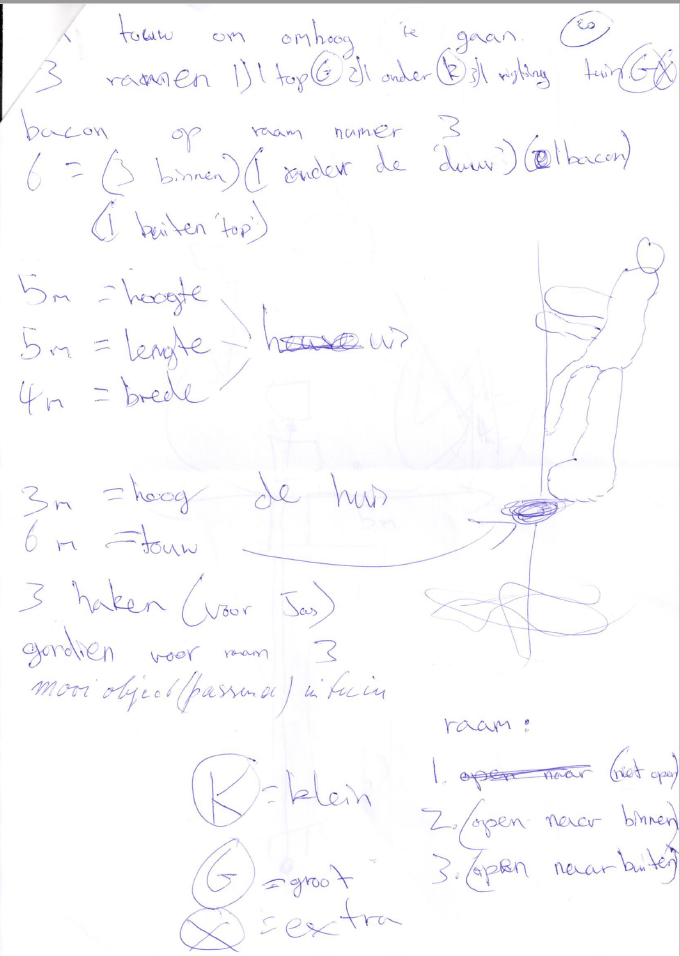 1 touw om omhoog te gaan.
3 ramen 1) 1 top G 2) 1 onder K 3) 1 richting tuin G X
bacon op raam numer 3
6 = (3 binnen) (1 onder de 'duur') (1 bacon)
(1 buiten 'top')
5m = hoogte
5m = lengte
4m = brede
3m = hoog de huis
6m = touw
3 haken (voor Jas)
gordien voor raam 3
mooi object (passend) in tuin
raam:
1. open naar (niet open)
2. (open naar binnen)
3. (open naar buiten)
K = klein
G = groot
X = extra